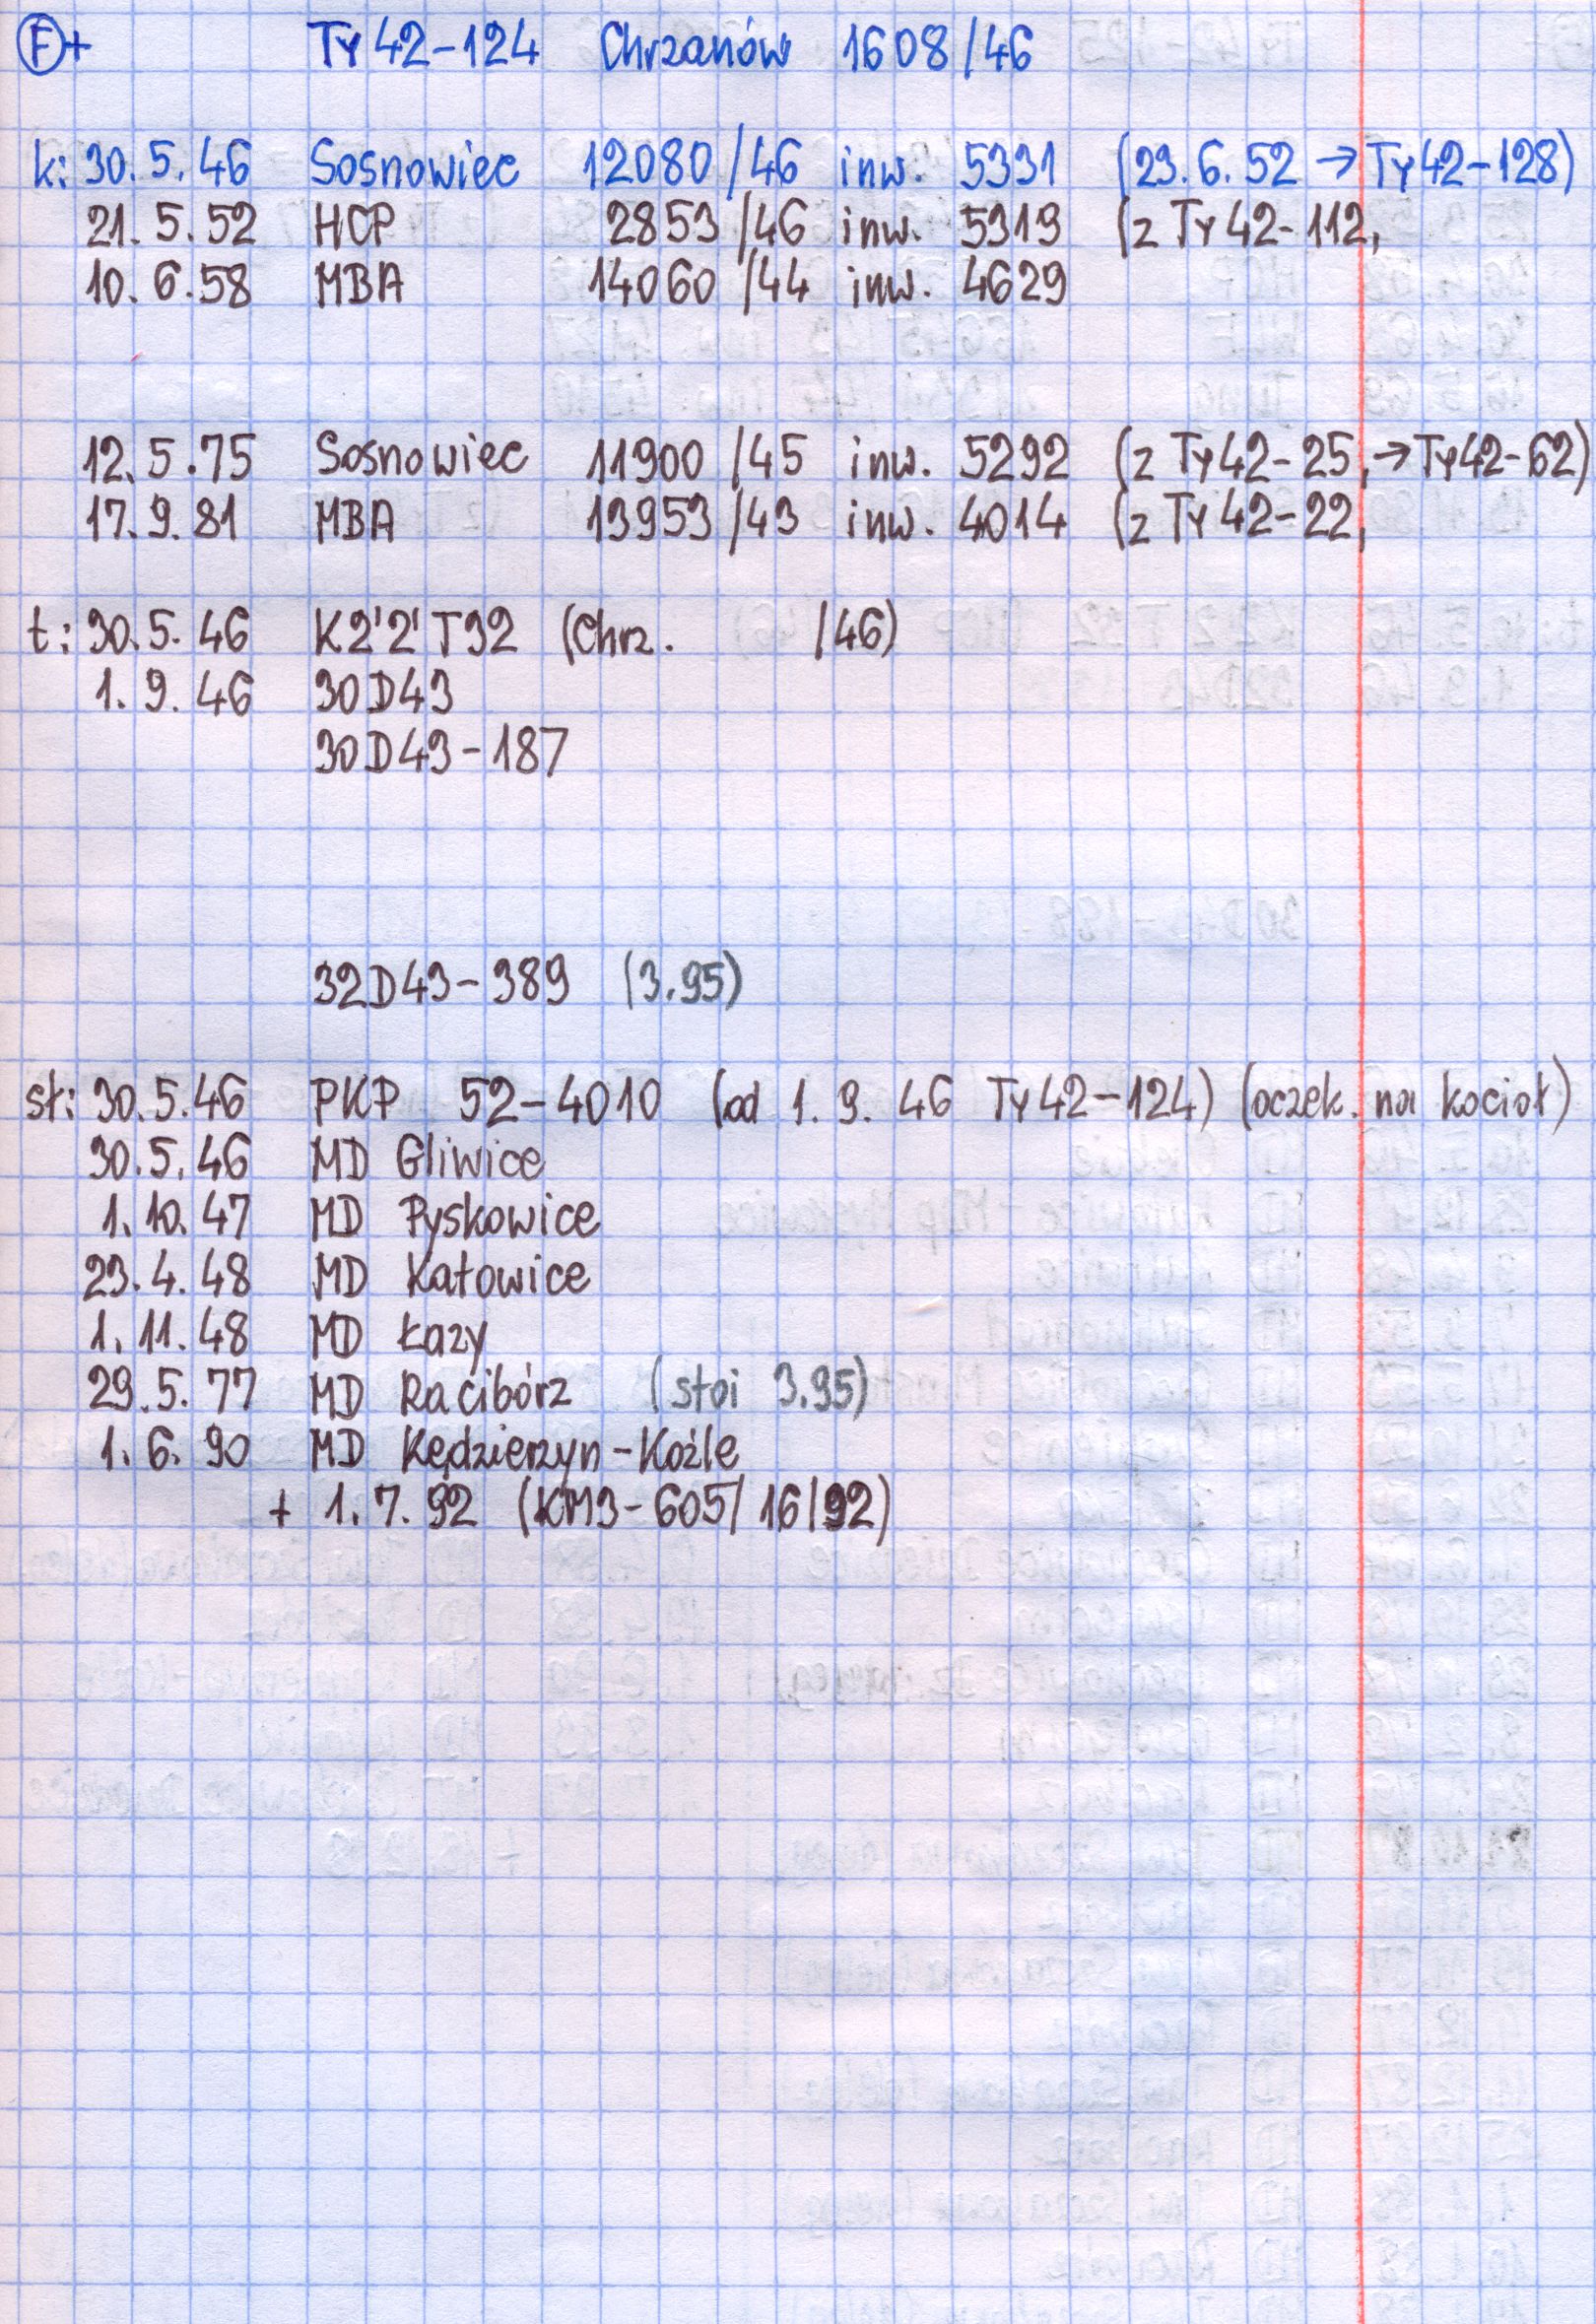 F + Ty42-124 Chrzanów 1608/46
k: 30.5.46 Sosnowiec 12080/46 inw. 5331 (23.6.52 → Ty42-128)
21.5.52 HCP 2853/46 inw. 5319 (z Ty42-112,
10.6.58 MBA 14060/44 inw. 4629
12.5.75 Sosnowiec 11900/45 inw. 5292 (z Ty42-25, → Ty42-62)
17.9.81 MBA 13953/43 inw. 4014 (z Ty42-22,
t: 30.5.46 K2'2'T32 (Chrz. /46)
1.9.46 30D43
30D43-187
32D43-389 (3.95)
st: 30.5.46 PKP 52-4010 (od 1.9.46 Ty42-124) (oczek. na kocioł)
30.5.46 MD Gliwice
1.10.47 MD Pyskowice
23.4.48 MD Katowice
1.11.48 MD Łazy
29.5.77 MD Racibórz (stoi 3.95)
1.6.90 MD Kędzierzyn-Koźle
+ 1.7.92 (KM3-605/16/92)